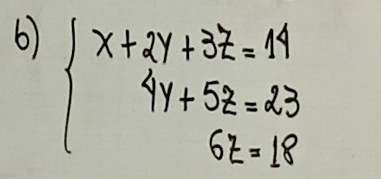 b) { x + 2y + 3z = 14
4y + 5z = 23
6z = 18